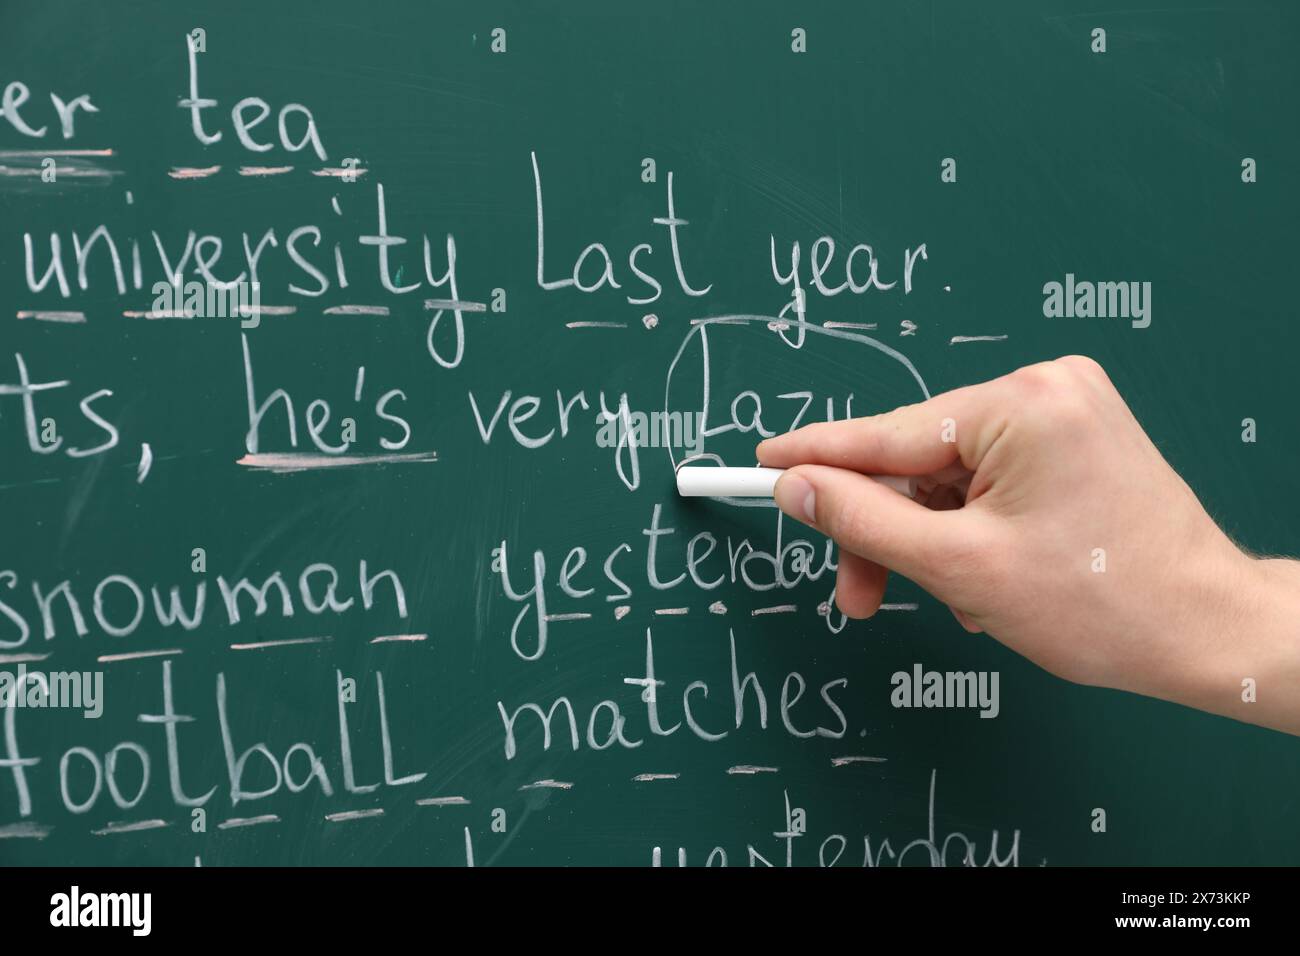 er tea
university last year.
ts, he's very lazy
snowman yesterday
football matches.
yesterday.
alamy
Image ID: 2X73KKP
www.alamy.com